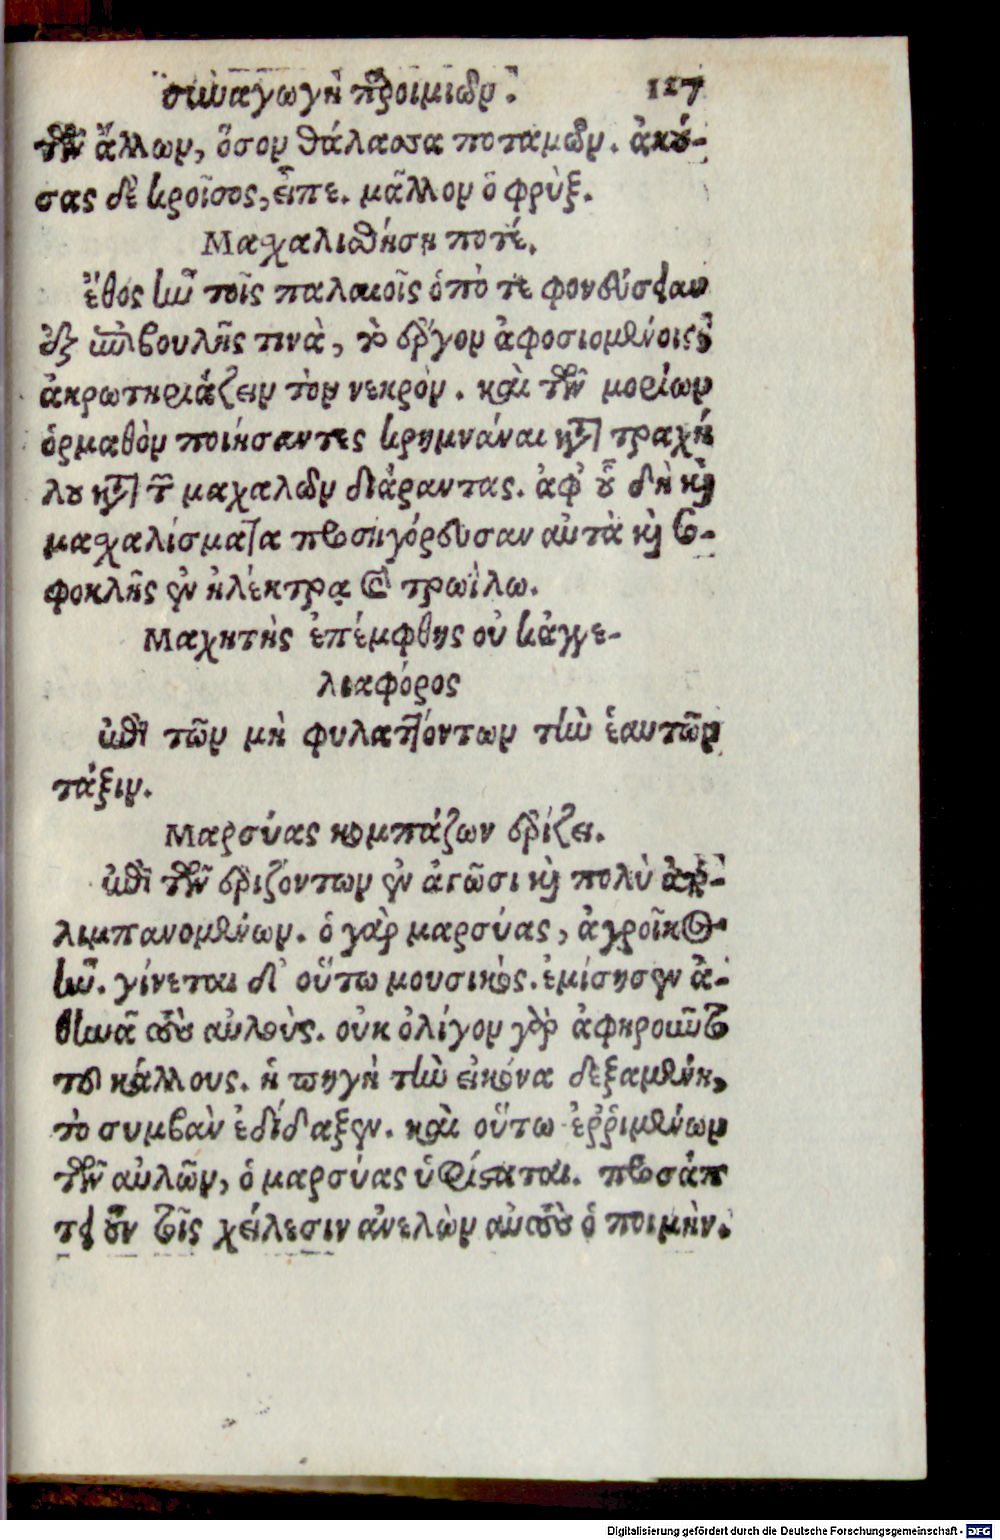 συναγωγὴ παροιμιῶν. 127
τῶν ἄλλων, ὅσον θάλασσα ποταμῶν. ἀκού-
σας δὲ κροῖσος, εἶπε. μᾶλλον ὁ φρὺξ.
Μαχαλισθήσῃ ποτέ.
ἔθος ἦν τοῖς παλαιοῖς ὁπότε φονεύσειαν
ἐξ ἐπιβουλῆς τινὰ, τὸ ἔργον ἀφοσιομένοις
ἀκρωτηριάζειν τὸν νεκρὸν. καὶ τῶν μορίων
ὁρμαθὸν ποιήσαντες κρημνάναι κατὰ τραχή
λου κατὰ τ μαχαλῶν διάραντας. ἀφ' οὗ δὴ καὶ
μαχαλίσματα προσηγόρευσαν αὐτὰ καὶ σο-
φοκλῆς ἐν ἠλέκτρα καὶ τρωΐλω.
Μαχητὴς ἐπέμφθης οὐ κἀγγε-
λιαφόρος
ἐπὶ τῶν μὴ φυλαττόντων τὴν ἑαυτῶν
τάξιν.
Μαρσύας κομπάζων ἐρίζει.
ἐπὶ τῶν ἐριζόντων ἐν ἀγῶσι καὶ πολὺ ἀπο-
λιμπανομένων. ὁ γὰρ μαρσύας, ἀγροῖκος
ἦν. γίνεται δ' οὕτω μουσικὸς. ἐμίσησεν ἀ-
θηνᾶ τοὺς αὐλοὺς. οὐκ ὀλίγον γὰρ ἀφῃροῦντο
τοῦ κάλλους. ἡ πηγὴ τὴν εἰκόνα δεξαμένη,
τὸ συμβὰν ἐδίδαξεν. καὶ οὕτω ἐῤῥιμένων
τῶν αὐλῶν, ὁ μαρσύας ὑφίσταται. προσάπ
τει οὖν τοῖς χείλεσιν ἀνελὼν αὐτοὺς ὁ ποιμὴν.
Digitalisierung gefördert durch die Deutsche Forschungsgemeinschaft - DFG